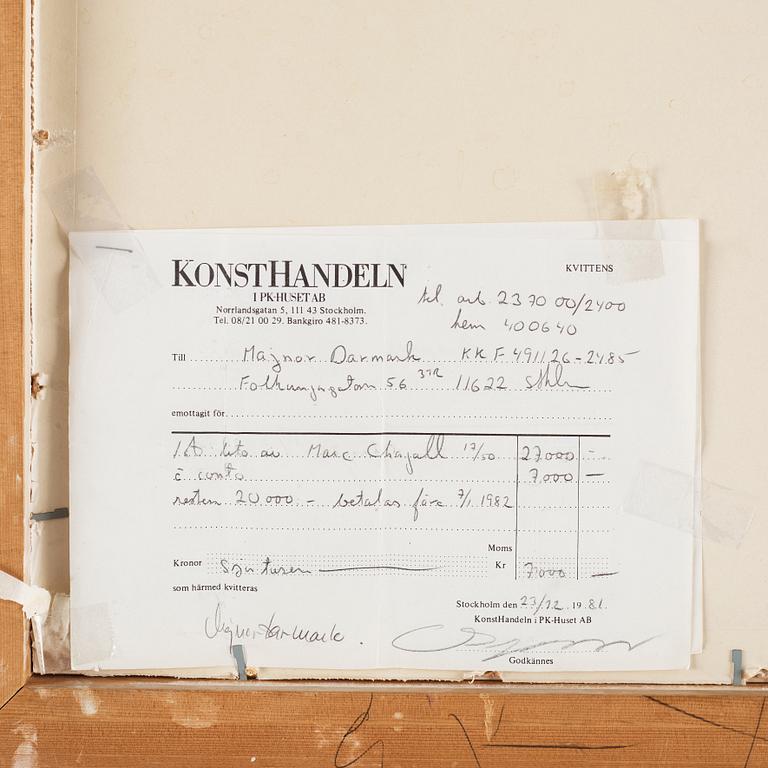 KONSTHANDELN
I PK-HUSET AB
Norrlandsgatan 5, 111 43 Stockholm.
Tel. 08/21 00 29. Bankgiro 481-8373.
KVITTENS
tel. arb. 23 70 00/2400
hem 400640
Till Majnor Darmark KKF 491126-2485
Folkungagatan 56 3TR 11622 Sthlm
emottagit för
1 st lito av Marc Chagall 17/50 27000 -
à conto 7000 —
resten 20 000:- betalas före 7/1 1982
Moms
Kronor Sju tusen — Kr 7000 —
som härmed kvitteras
Stockholm den 23/12 1981.
KonstHandeln i PK-Huset AB
Majnor Darmark.
Godkännes